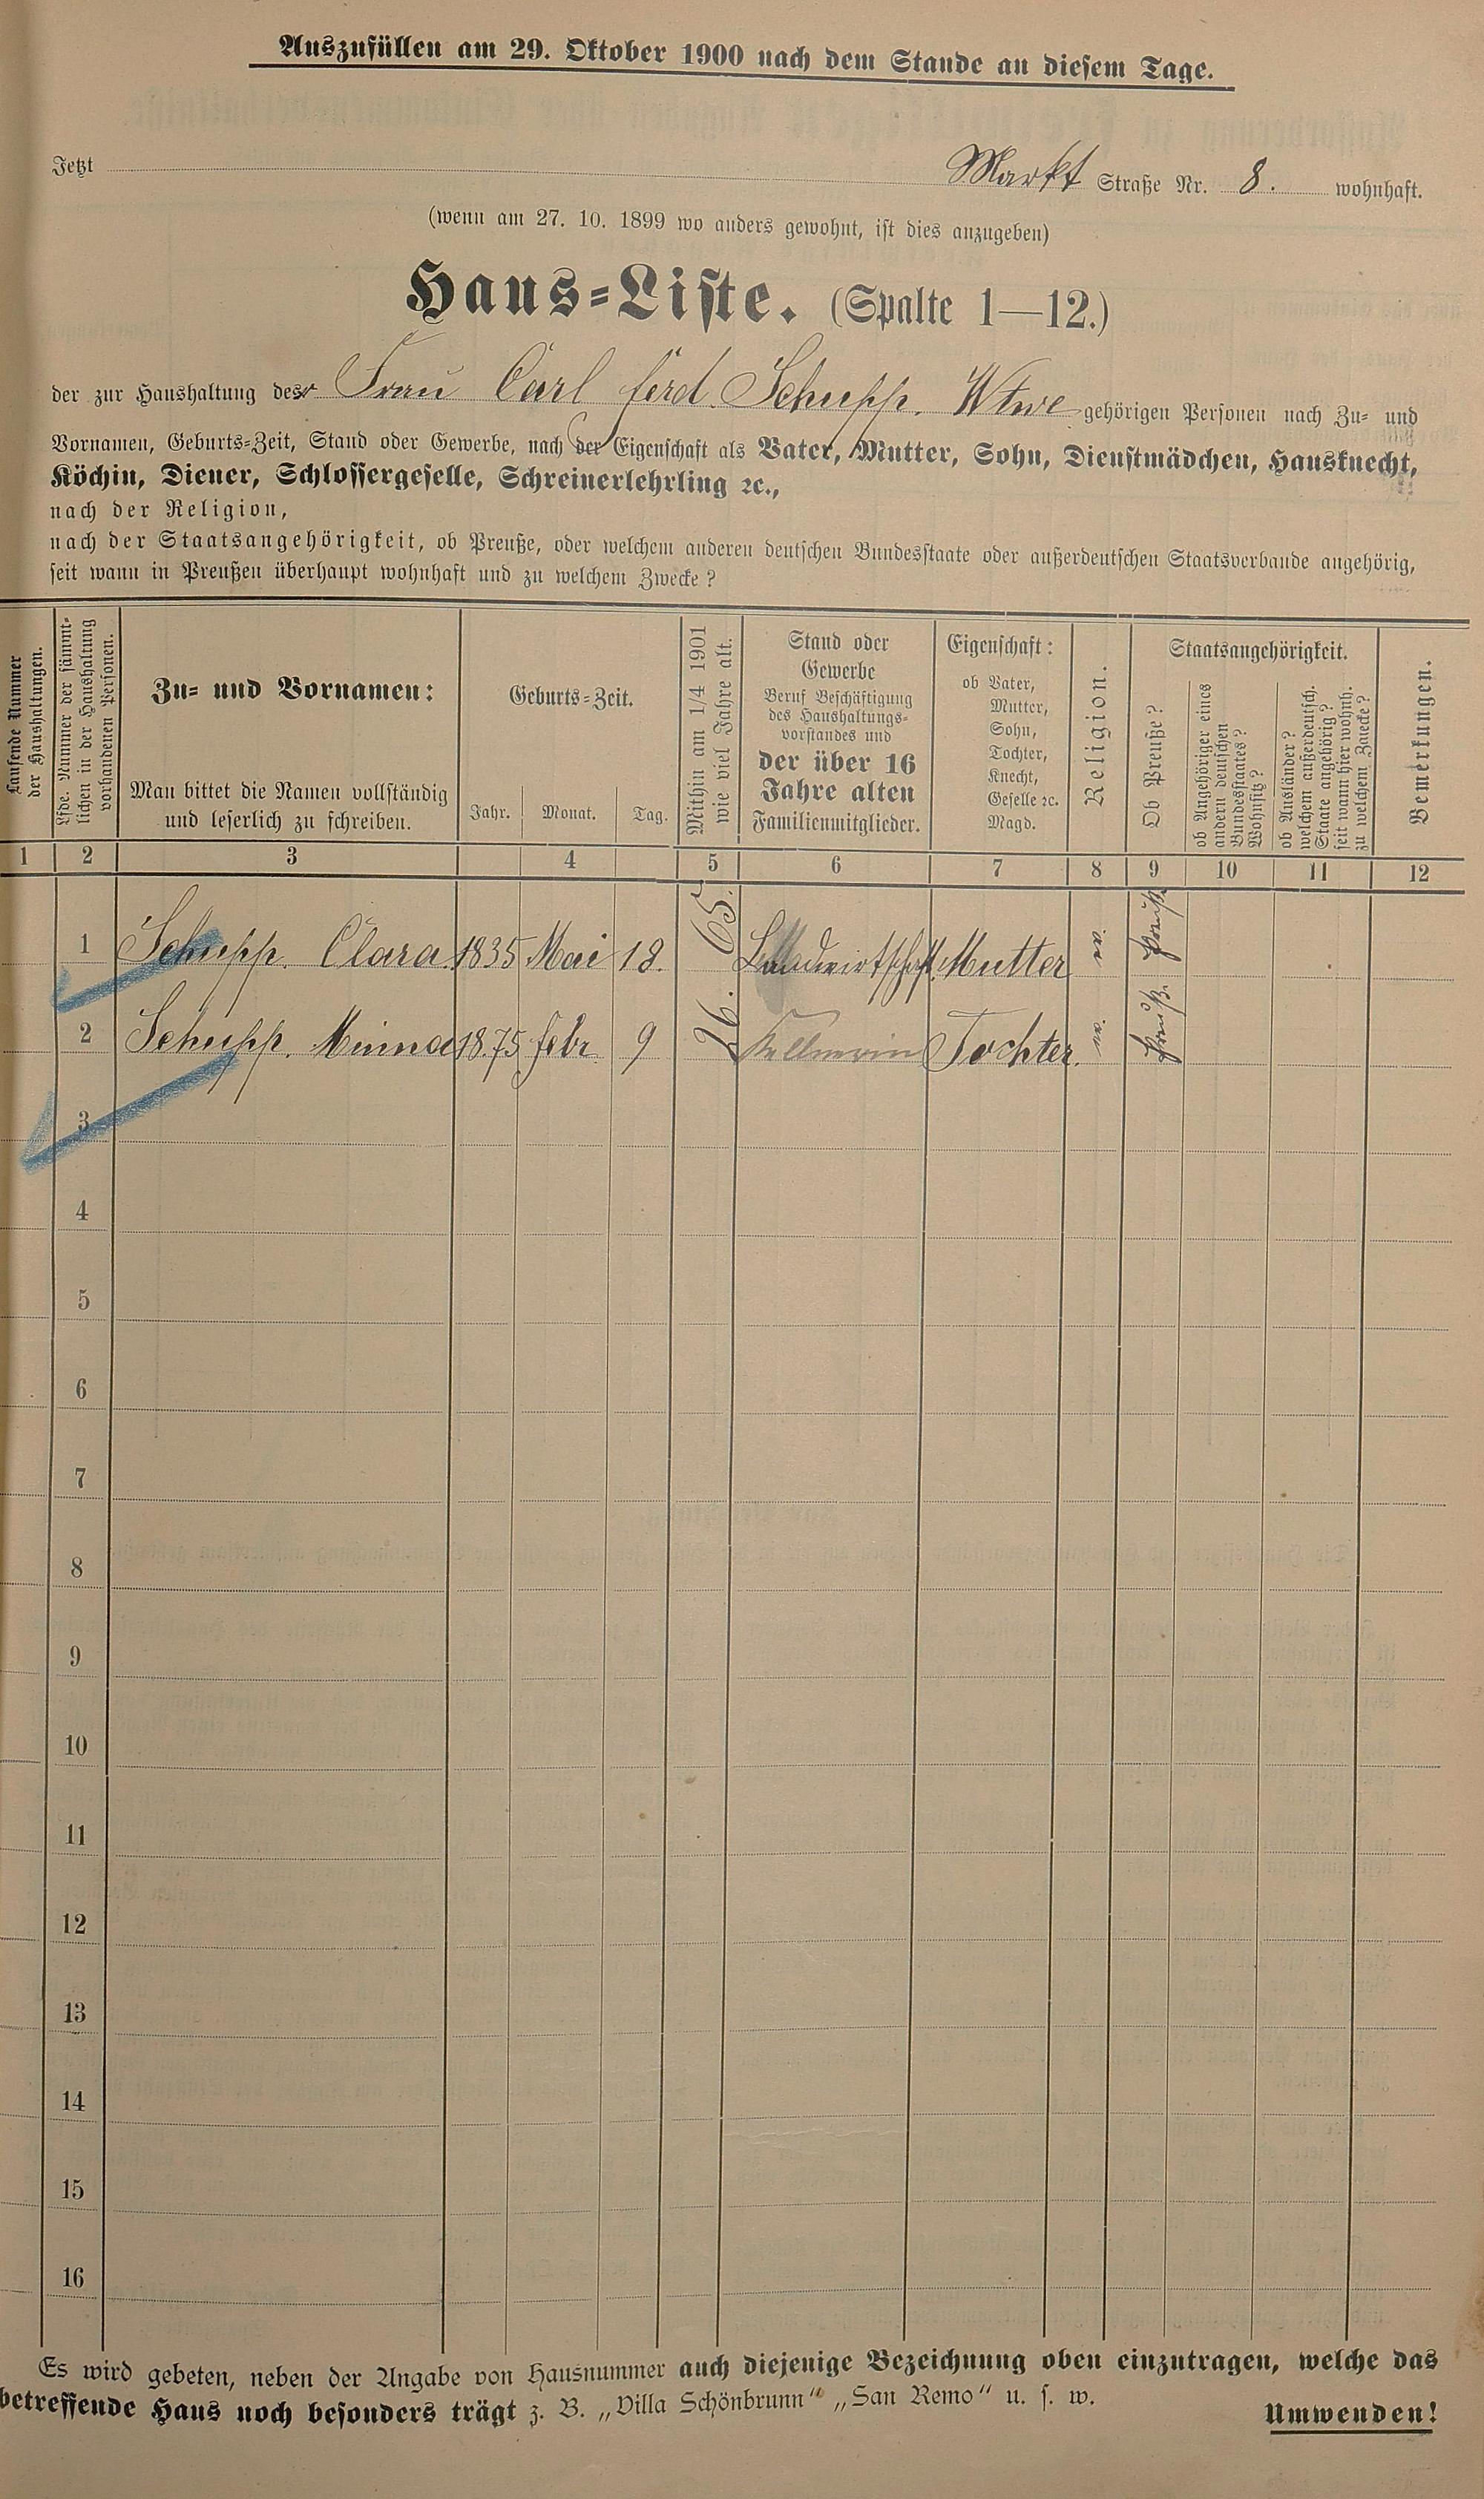 Auszufüllen am 29. Oktober 1900 nach dem Stande an diesem Tage.
Jetzt Markt Straße Nr. 8. wohnhaft.
(wenn am 27. 10. 1899 wo anders gewohnt, ist dies anzugeben)
Haus-Liste. (Spalte 1—12.)
der zur Haushaltung der Frau Carl Ferd. Schupp. Wtwe gehörigen Personen nach Zu- und
Vornamen, Geburts-Zeit, Stand oder Gewerbe, nach der Eigenschaft als Vater, Mutter, Sohn, Dienstmädchen, Hausknecht,
Köchin, Diener, Schlossergeselle, Schreinerlehrling ꝛc.,
nach der Religion,
nach der Staatsangehörigkeit, ob Preuße, oder welchem anderen deutschen Bundesstaate oder außerdeutschen Staatsverbande angehörig,
seit wann in Preußen überhaupt wohnhaft und zu welchem Zwecke?
Laufende Nummer
der Haushaltungen.
Lfde. Nummer der sämmt-
lichen in der Haushaltung
vorhandenen Personen.
Zu- und Vornamen:
Man bittet die Namen vollständig
und leserlich zu schreiben.
Geburts-Zeit.
Jahr. Monat. Tag.
Mithin am 1/4 1901
wie viel Jahre alt.
Stand oder
Gewerbe
Beruf Beschäftigung
des Haushaltungs-
vorstandes und
der über 16
Jahre alten
Familienmitglieder.
Eigenschaft:
ob Vater,
Mutter,
Sohn,
Tochter,
Knecht,
Geselle ꝛc.
Magd.
Religion.
Staatsangehörigkeit.
Ob Preuße?
ob Angehöriger eines
andern deutschen
Bundesstaates?
Wohnsitz?
ob Ausländer?
welchem außerdeutsch.
Staate angehörig?
seit wann hier wohnh.
zu welchem Zwecke?
Bemerkungen.
1 2 3 4 5 6 7 8 9 10 11 12
1 Schupp. Clara. 1835 Mai 18. 65. Landwirtschaft. Mutter
2 Schupp. Minna 1875 Febr. 9 26. Kellnerin Tochter.
3
4
5
6
7
8
9
10
11
12
13
14
15
16
Es wird gebeten, neben der Angabe von Hausnummer auch diejenige Bezeichnung oben einzutragen, welche das
betreffende Haus noch besonders trägt z. B. „Villa Schönbrunn“ „San Remo“ u. s. w.
Umwenden!